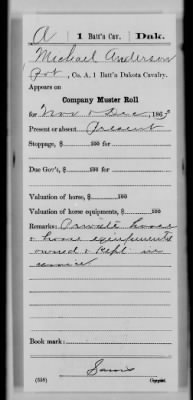 A | 1 Batt'n Cav. | Dak.
Michael Anderson
Pvt, Co. A, 1 Batt'n Dakota Cavalry.
Appears on
Company Muster Roll
for Nov & Dec, 186
Present or absent Present
Stoppage, $ 100 for
Due Gov't, $ 100 for
Valuation of horse, $ 100
Valuation of horse equipments, $ 100
Remarks: Private horse
& horse equipments
owned & kept in
service
Book mark:
(358) Copyist.